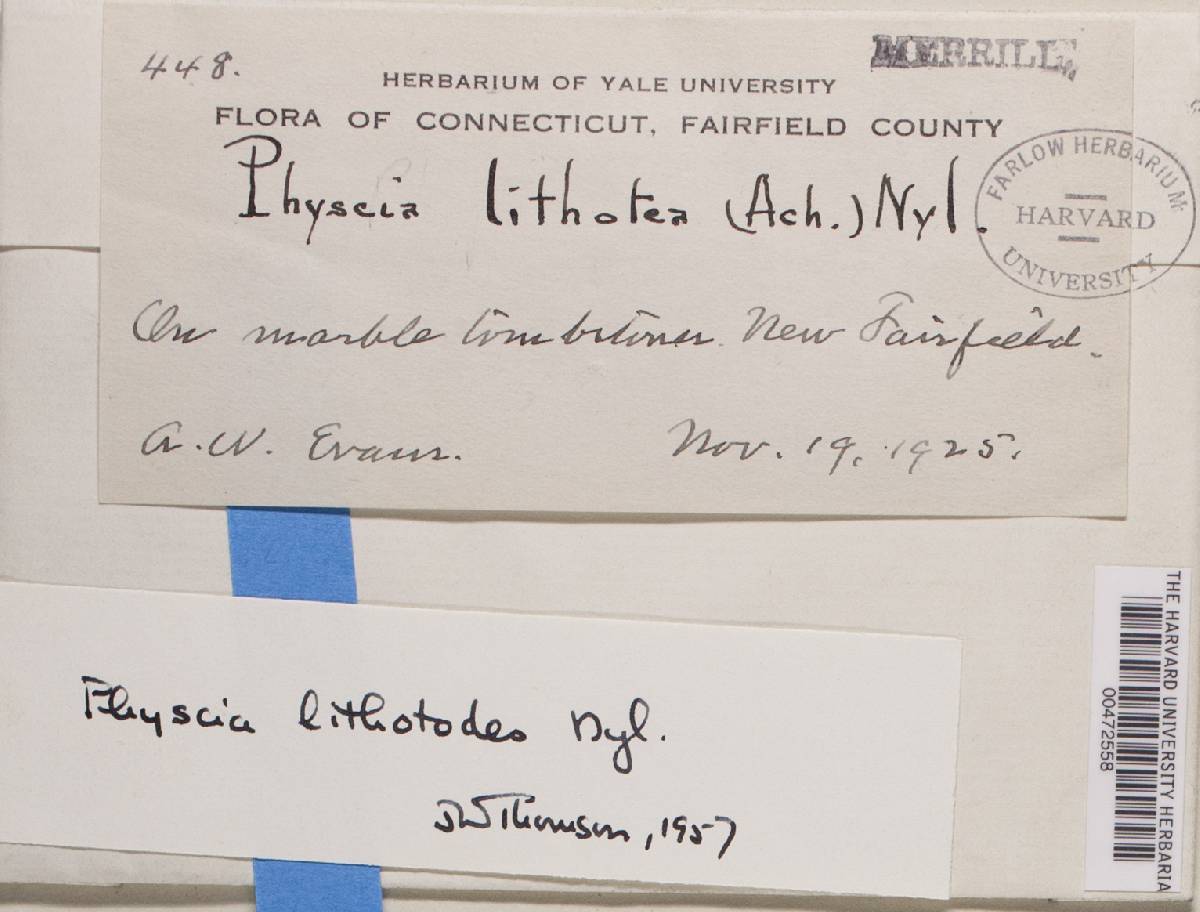 448.
MERRILL
HERBARIUM OF YALE UNIVERSITY
FLORA OF CONNECTICUT, FAIRFIELD COUNTY
Physcia lithotea (Ach.) Nyl.
FARLOW HERBARIUM
HARVARD
UNIVERSITY
On marble tombstones. New Fairfield.
A. W. Evans. Nov. 19, 1925.
Physcia lithotodes Nyl.
JW Thomson, 1957
THE HARVARD UNIVERSITY HERBARIA
00472558